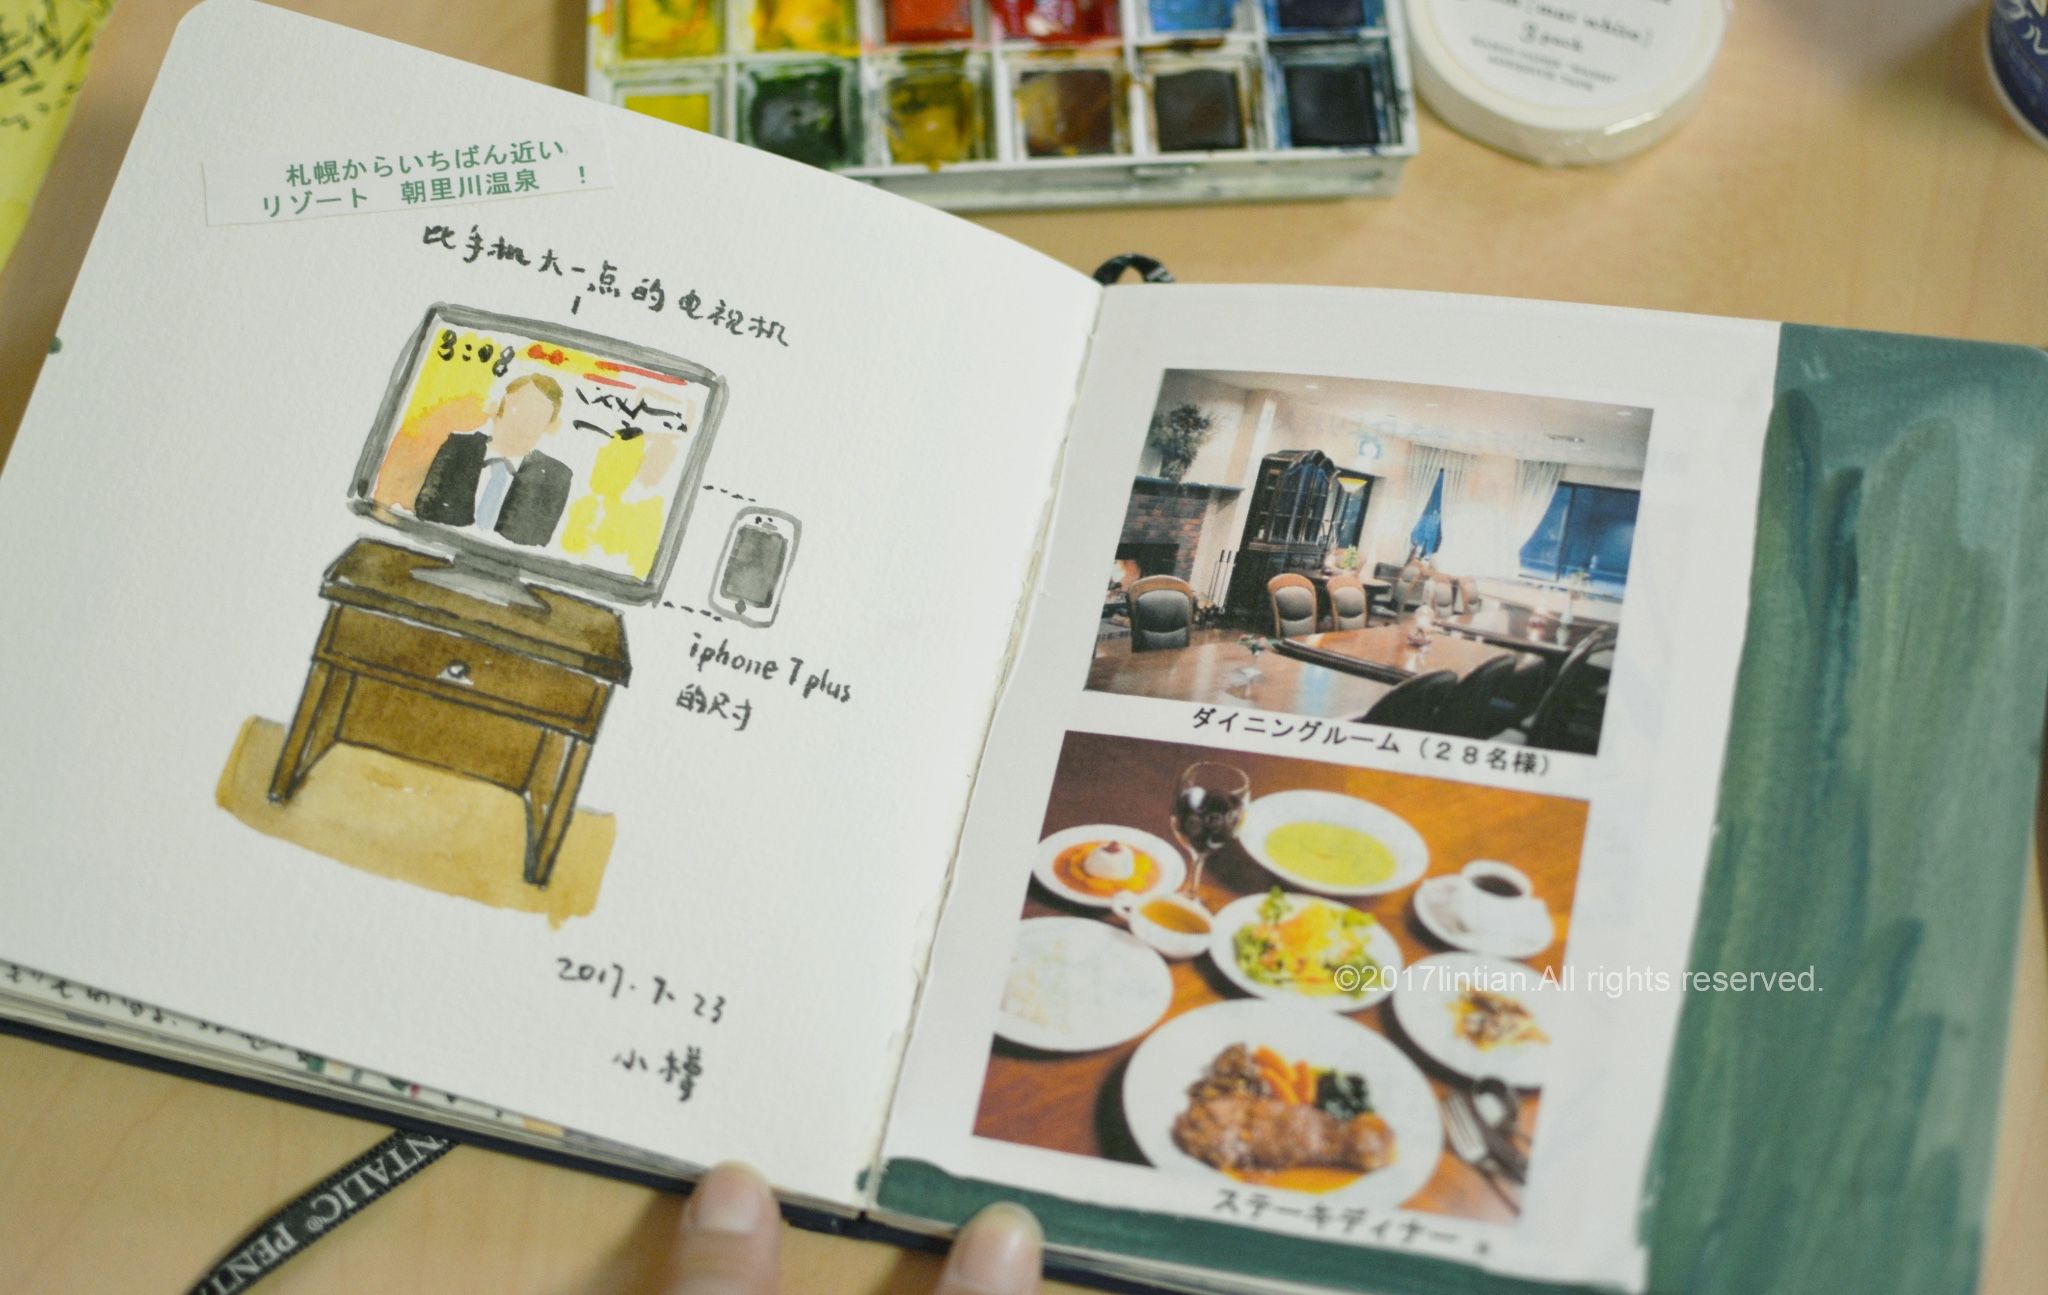 札幌からいちばん近い
リゾート　朝里川温泉　！
比手机大一点的电视机
3:08
iphone 7 plus
的尺寸
2017.7.23
小樽
ダイニングルーム（２８名様）
ステーキディナー
©2017lintian.All rights reserved.
PENTALIC® PENT